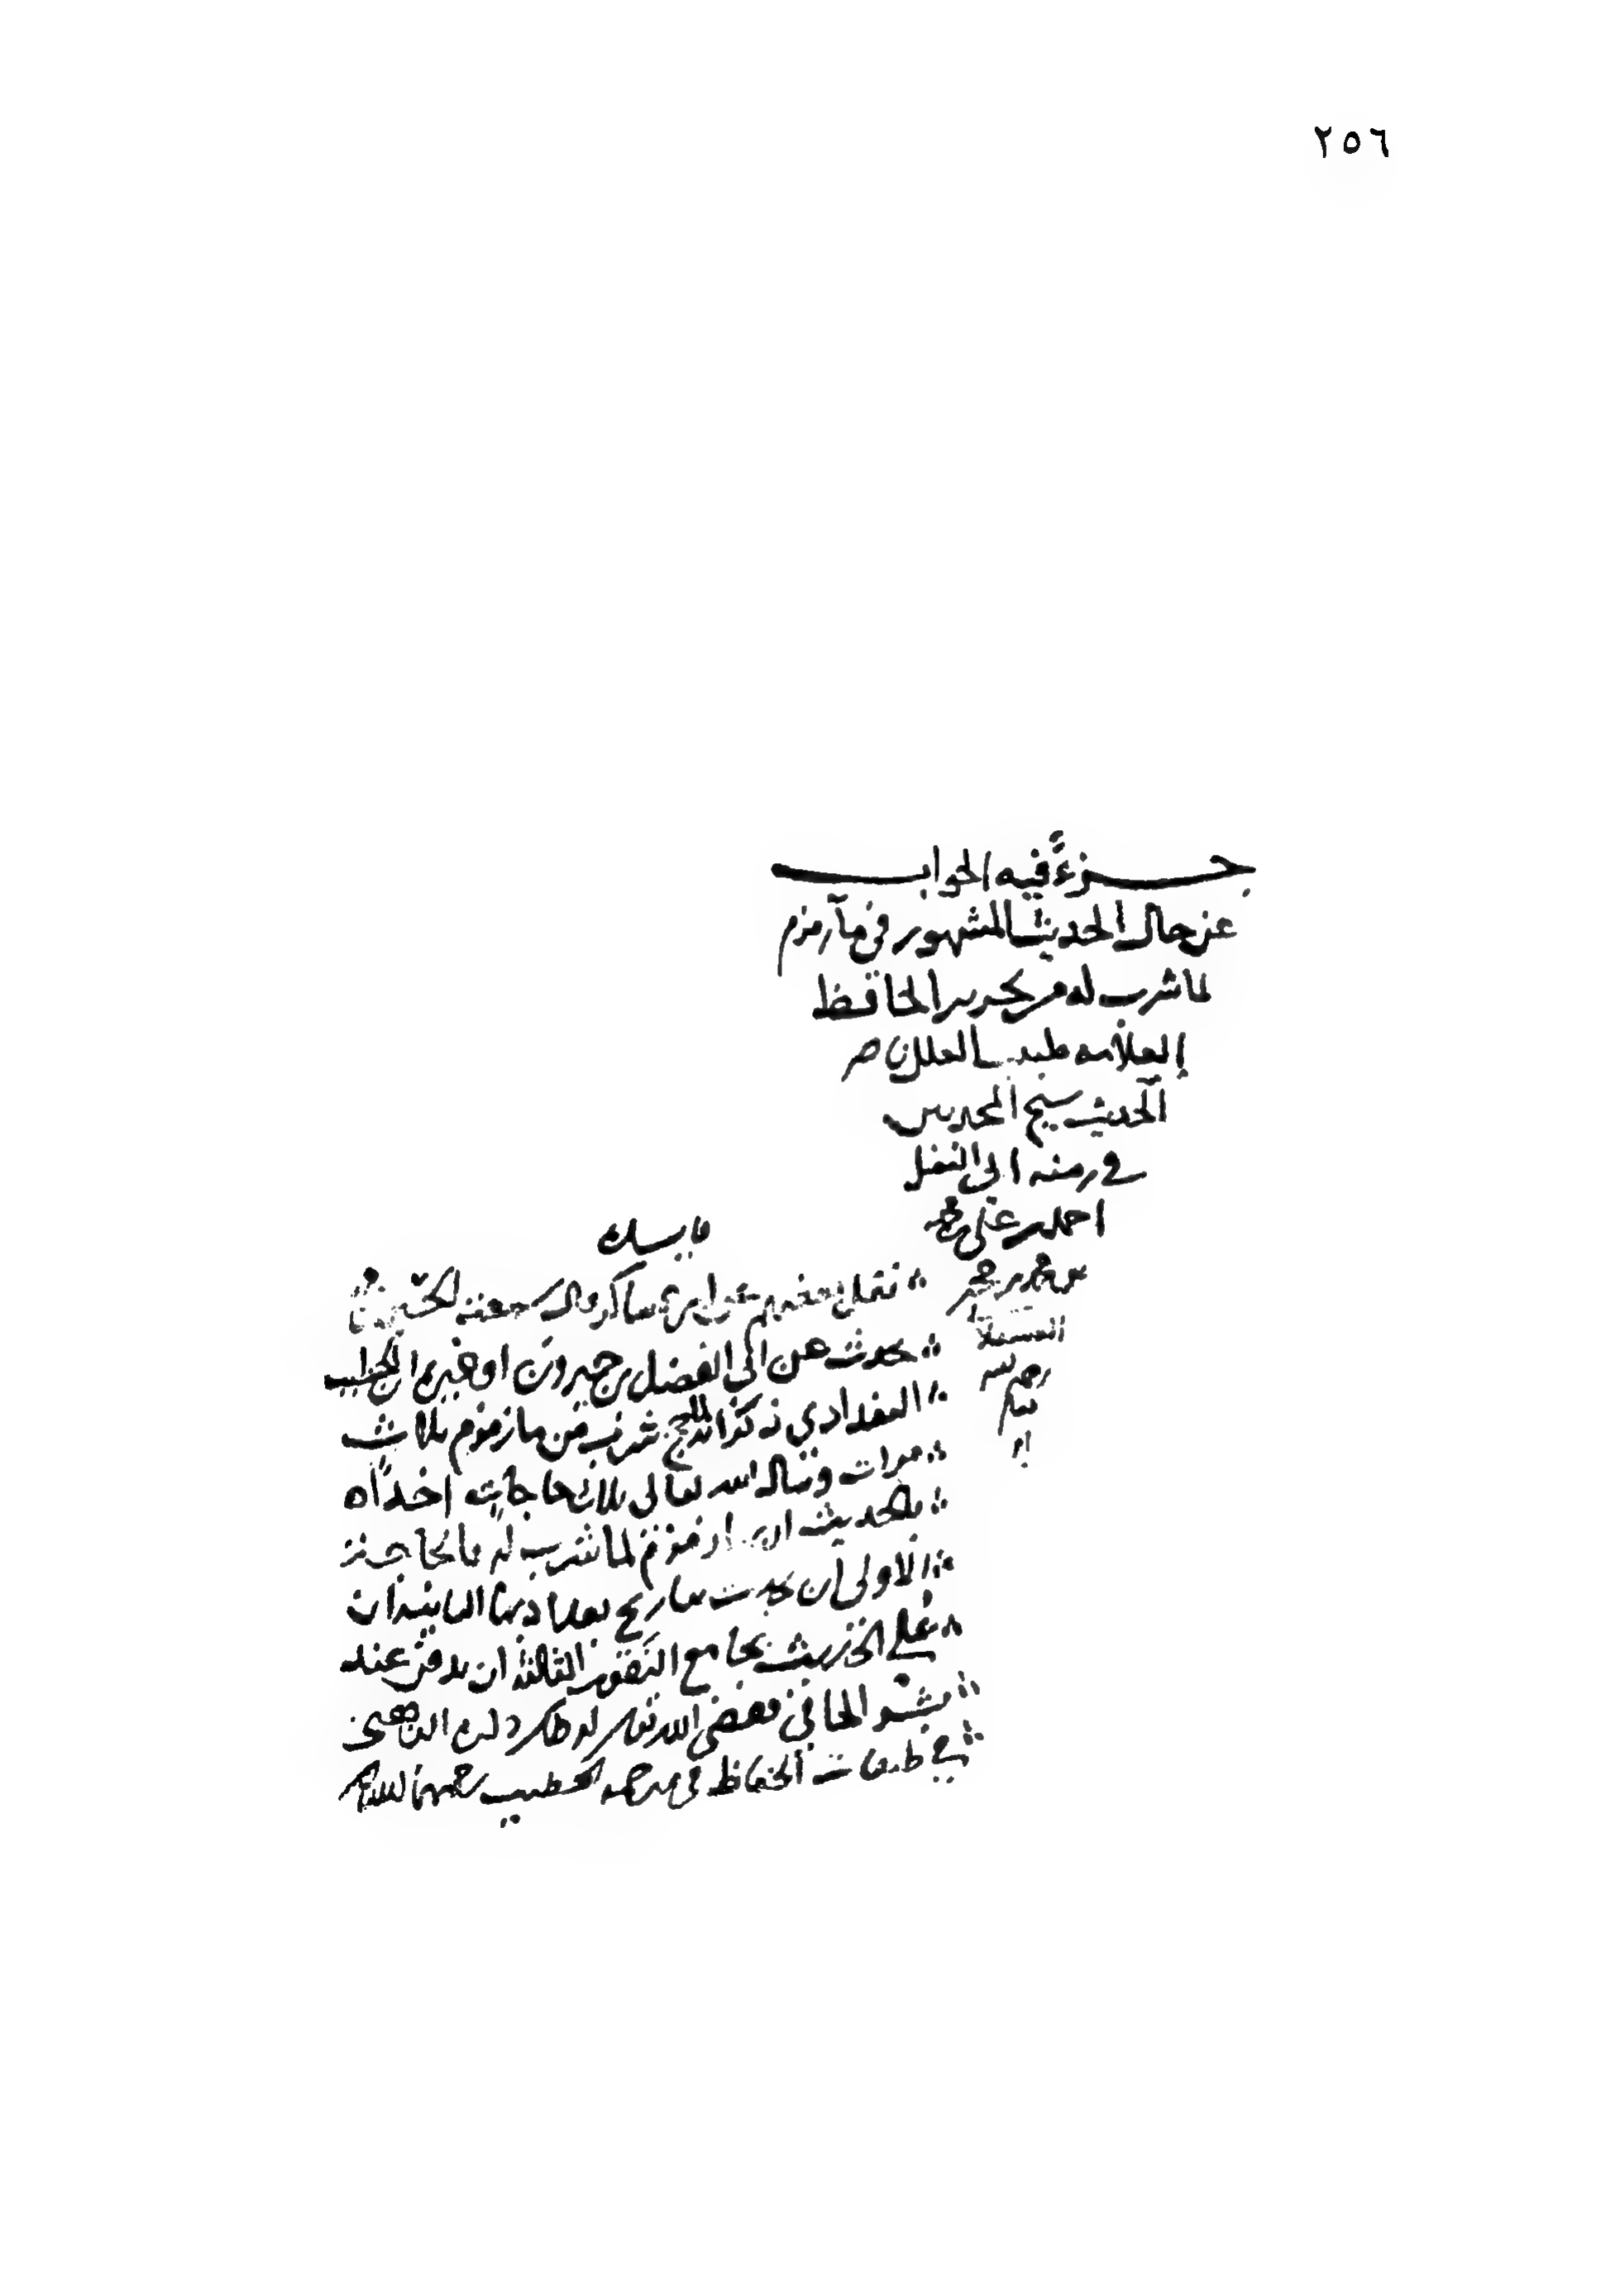 ٢٥٦
جزءٌ فيه الجواب
عن حال الحديث المشهور في ماء زمزم
لما شرب له من تحرير الحافظ
العلامه طبيب العلل ناصر
الحديث شيخ المحدثين
في زمنه ابي الفضل
احمد بن علي بن محمد
بن محمد بن حجر
العسقلاني
رحمه الله
تعالى
فايده
نقل بعضهم عن ابن عساكر قال سمعت الحسين بن محمد
يحدث عن ابي الفضل بن خيرون او غيره ان الخطيب
البغدادي ذكر انه لما حج شرب من ماء زمزم ثلاث
مرات وسال الله تعالى ثلاث حاجات اخذًا
بالحديث ماء زمزم لما شرب له فالحاجة
الاولى ان يحدث بتاريخ بغداد بها الثانية ان
يملي الحديث بجامع المنصور الثالثة ان يدفن عند
بشر الحافي فقضى الله له ذلك ذكره الذهبي
في طبقات الحفاظ في ترجمه الخطيب رحمهما الله